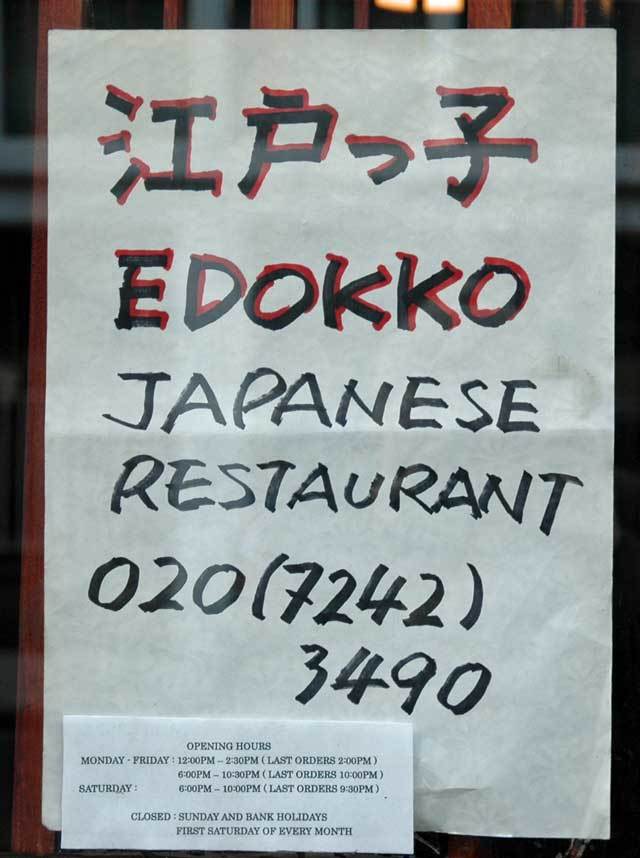 江戸っ子
EDOKKO
JAPANESE
RESTAURANT
020(7242)
3490
OPENING HOURS
MONDAY - FRIDAY : 12:00PM – 2:30PM ( LAST ORDERS 2:00PM )
6:00PM – 10:30PM ( LAST ORDERS 10:00PM )
SATURDAY : 6:00PM – 10:00PM ( LAST ORDERS 9:30PM )
CLOSED : SUNDAY AND BANK HOLIDAYS
FIRST SATURDAY OF EVERY MONTH